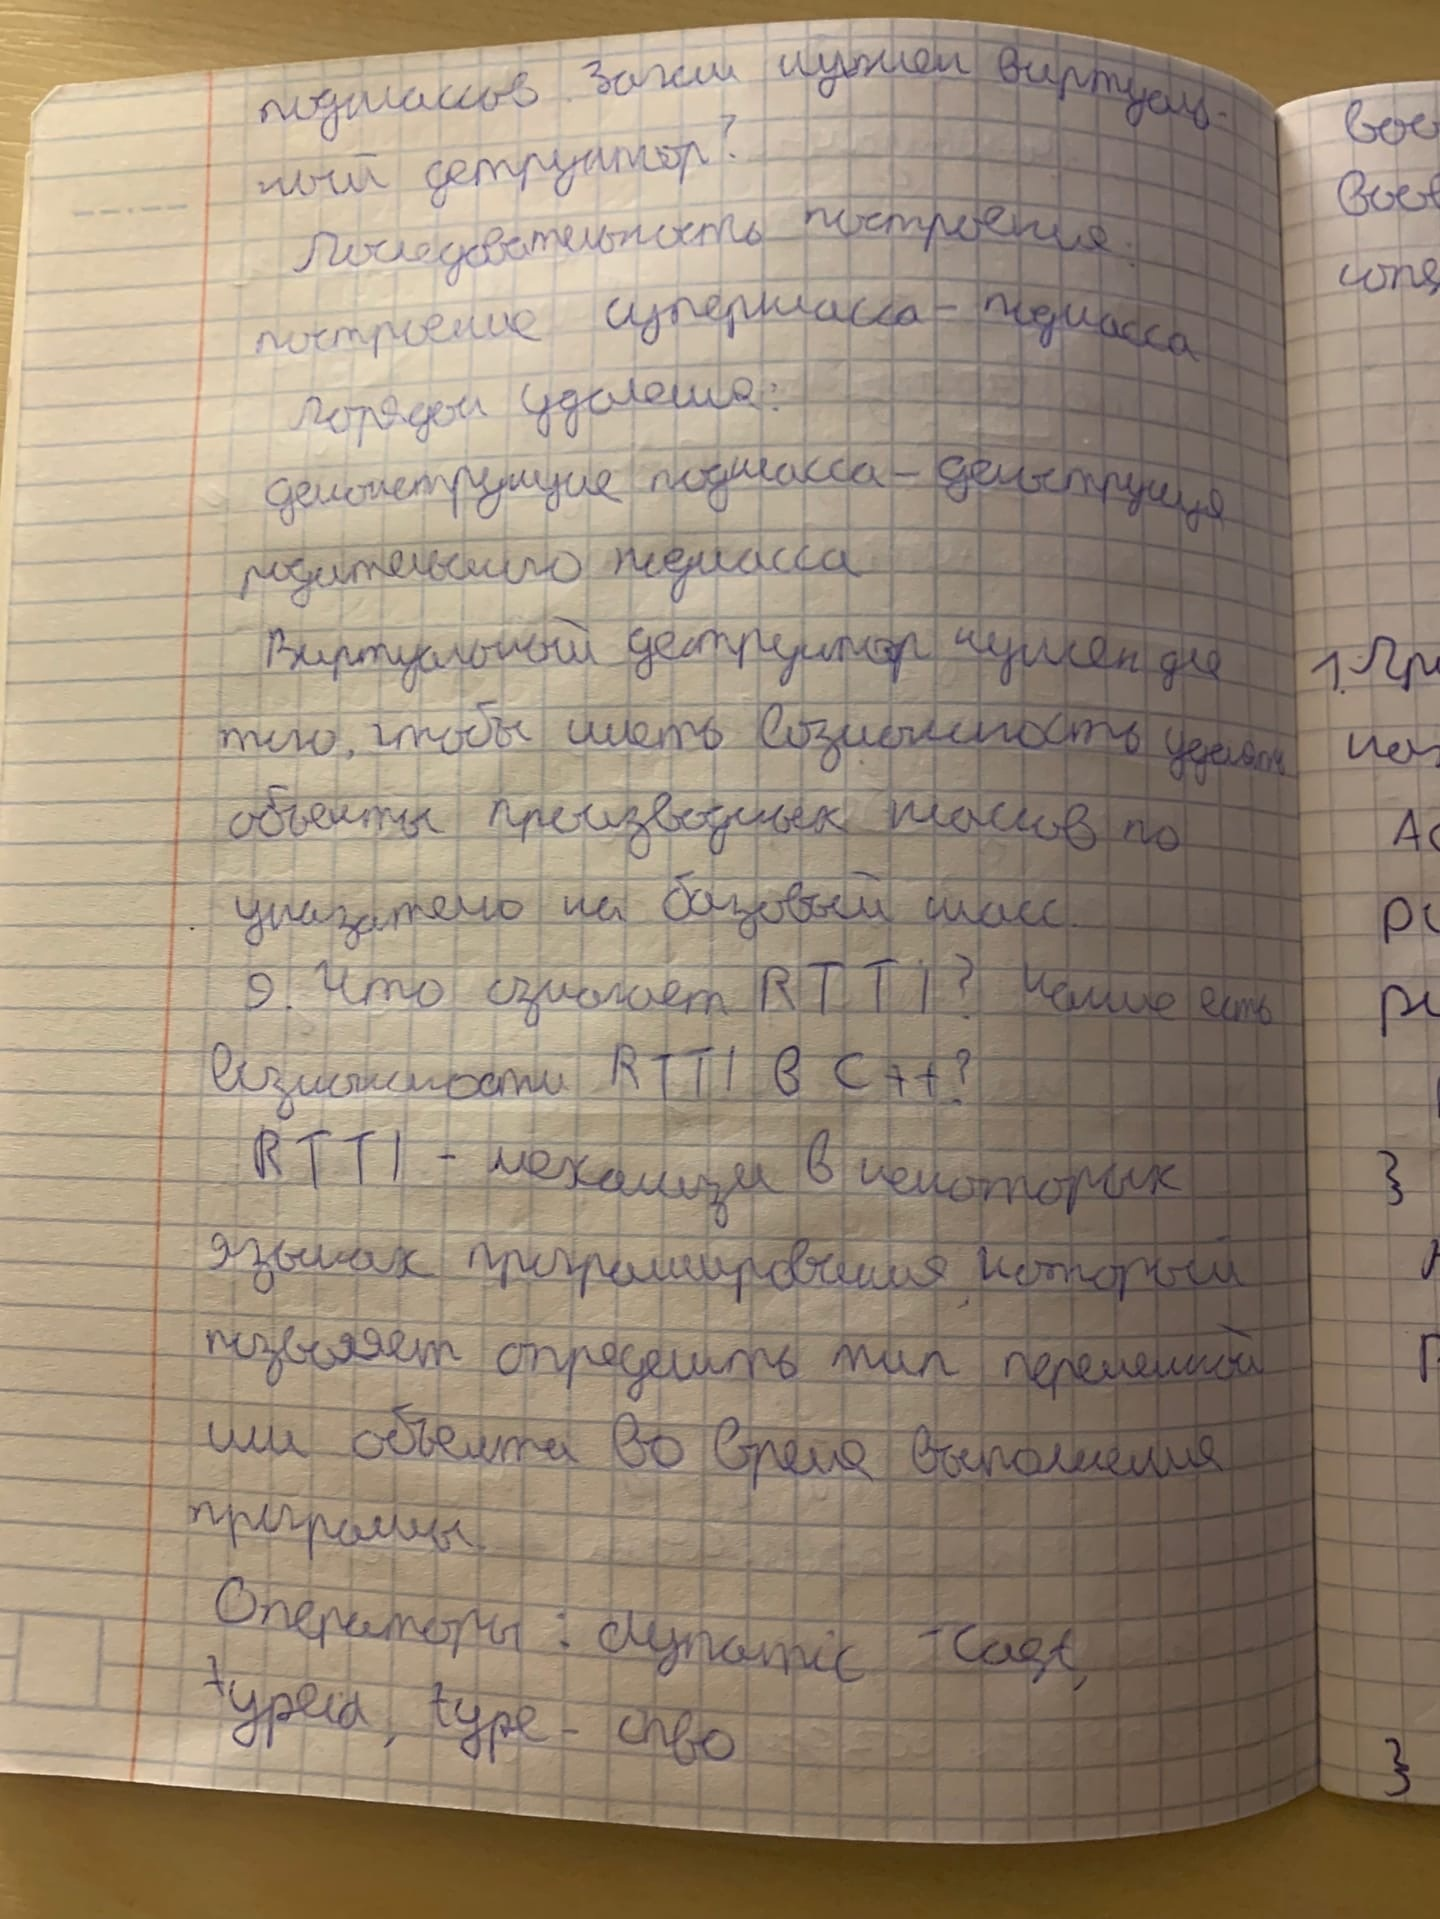 подклассов. Зачем нужен виртуаль-
ный деструктор?
Последовательность построения:
построение суперкласса - подкласса
Порядок удаления:
деконструкция подкласса - деконструкция
родительского подкласса
Виртуальный деструктор нужен для
того, чтобы иметь возможность удалять
объекты производных классов по
указателю на базовый класс.
9. Что означает RTTI? Какие есть
возможности RTTI в C++?
RTTI - механизм в некоторых
языках программирования, который
позволяет определить тип переменной
или объекта во время выполнения
программы.
Операторы: dynamic -cast,
typeid, type-
1.
}
}